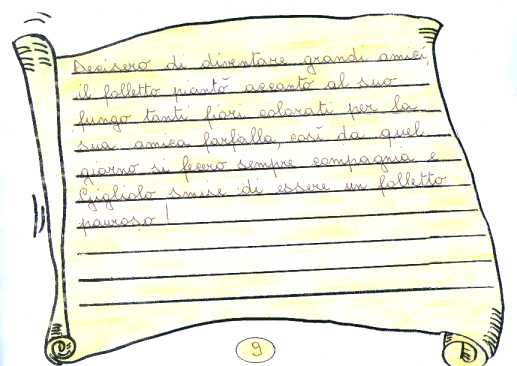 Decisero di diventare grandi amici,
il folletto piantò accanto al suo
fungo tanti fiori colorati per la
sua amica farfalla, così da quel
giorno si fecero sempre compagnia e
Gigliolo smise di essere un folletto
pauroso!
9